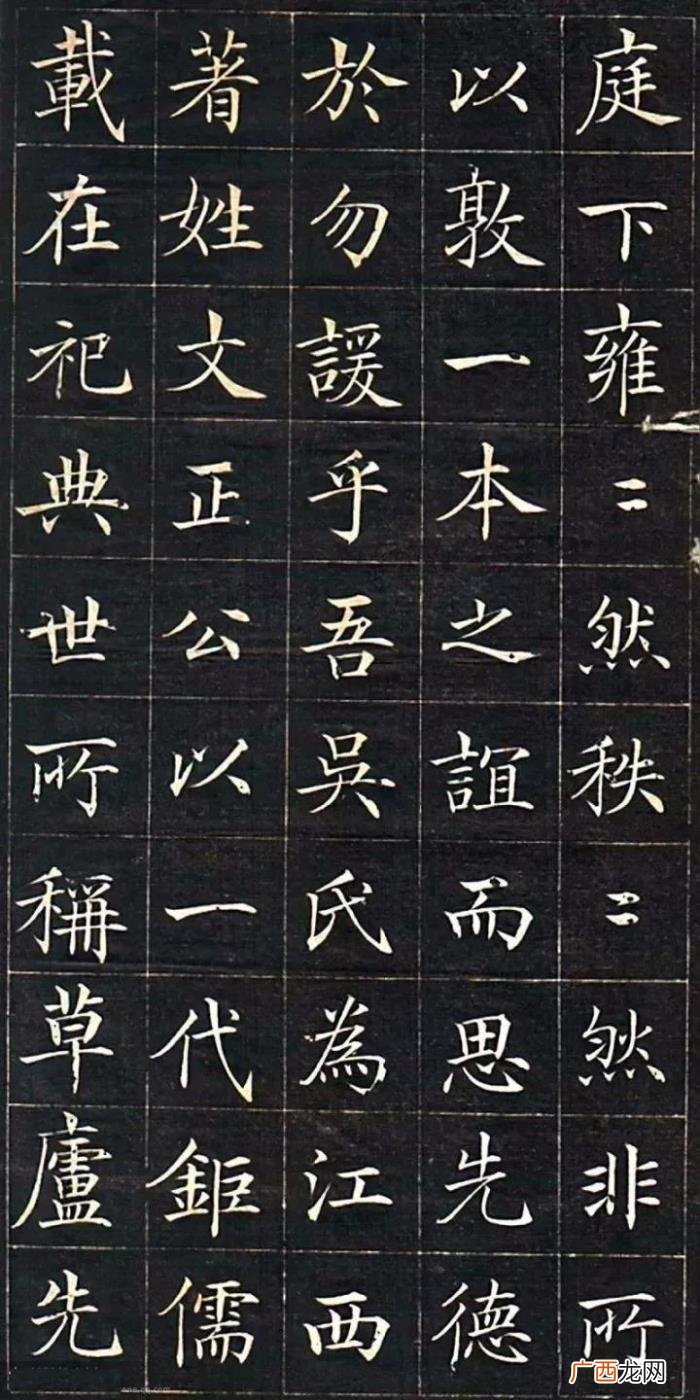 庭下雍〻然秩〻然非所
以敦一本之誼而思先德
於勿諼乎吾吳氏為江西
著姓文正公以一代鉅儒
載在祀典世所稱草廬先
广西龙网